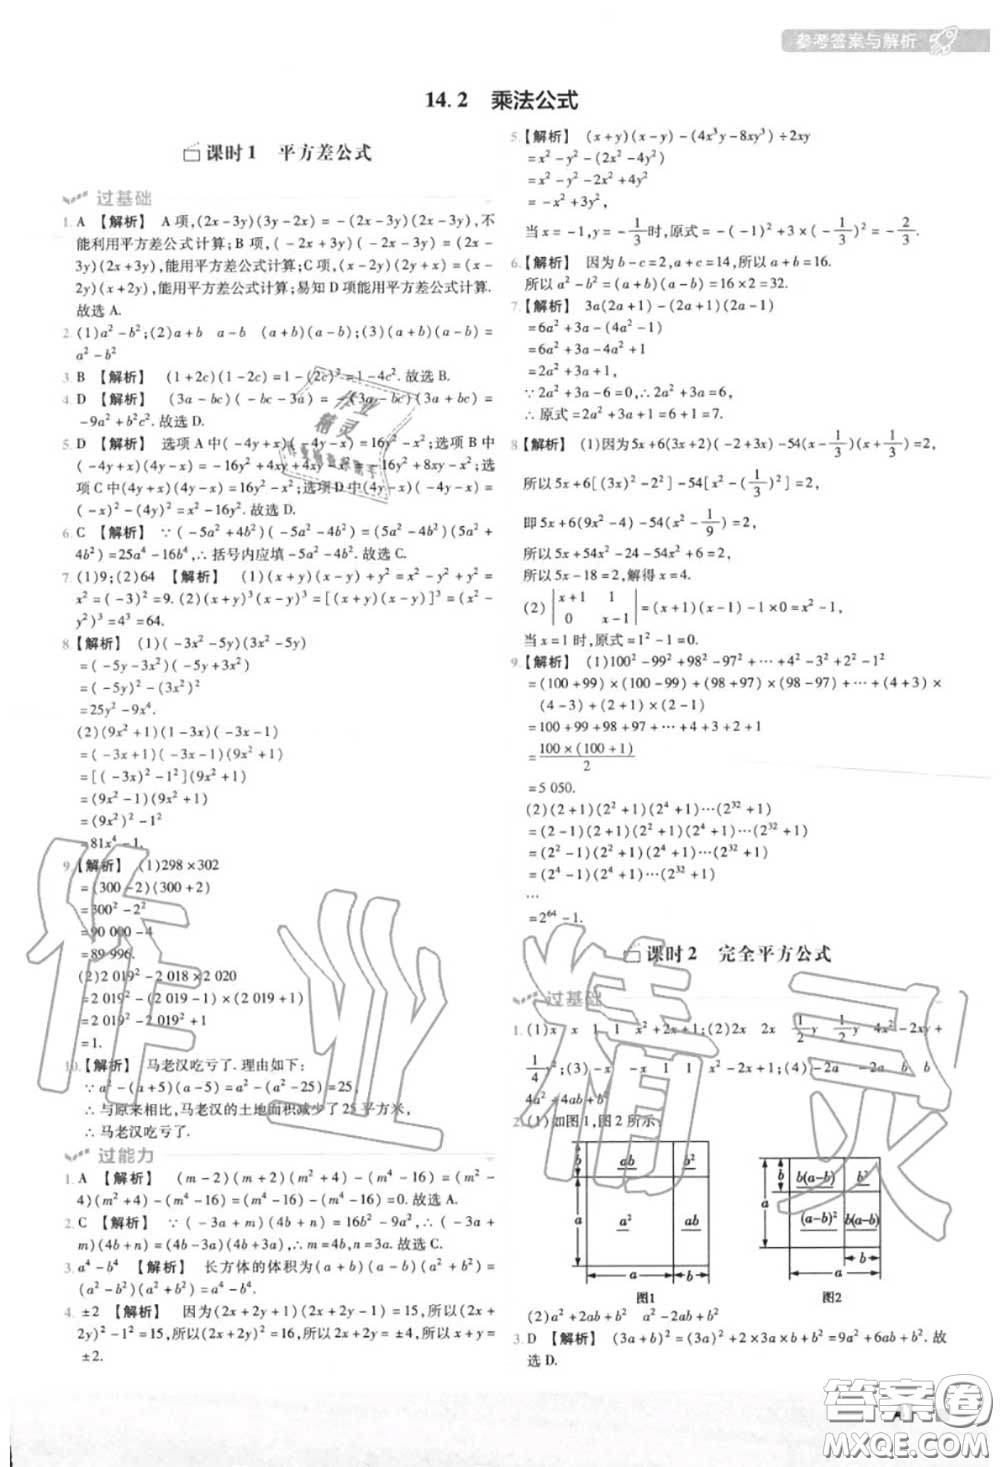 参考答案与解析
14.2 乘法公式
课时1 平方差公式
过基础
1. A 【解析】 A项,(2x-3y)(3y-2x)=-(2x-3y)(2x-3y),不
能利用平方差公式计算;B项,(-2x+3y)(-2x-3y)=(2x-
3y)(2x+3y),能用平方差公式计算;C项,(x-2y)(2y+x)=(x-
2y)(x+2y),能用平方差公式计算;易知D项能用平方差公式计算.
故选A.
2. (1)a²-b²;(2)a+b a-b (a+b)(a-b);(3)(a+b)(a-b)=
a²-b²
3. B 【解析】 (1+2c)(1-2c)=1-(2c)²=1-4c².故选B.
4. D 【解析】 (3a-bc)(-bc-3a)=-(3a-bc)(3a+bc)=
-9a²+b²c².故选D.
5. D 【解析】 选项A中(-4y+x)(-4y-x)=16y²-x²;选项B中
(-4y+x)(4y-x)=-16y²+4xy+4xy-x²=-16y²+8xy-x²;选
项C中(4y+x)(4y+x)=16y²+8xy+x²;选项D中(4y-x)(-x-4y)=
(-x)²-(4y)²=x²-16y².故选D.
6. C 【解析】 ∵(-5a²+4b²)(-5a²-4b²)=(5a²-4b²)(5a²+
4b²)=25a⁴-16b⁴,∴括号内应填-5a²-4b².故选C.
7. (1)9;(2)64 【解析】 (1)(x+y)(x-y)+y²=x²-y²+y²=
x²=(-3)²=9.(2)(x+y)³(x-y)³=[(x+y)(x-y)]³=(x²-
y²)³=4³=64.
8. 【解析】 (1)(-3x²-5y)(3x²-5y)
=(-5y-3x²)(-5y+3x²)
=(-5y)²-(3x²)²
=25y²-9x⁴.
(2)(9x²+1)(1-3x)(-3x-1)
=(-3x+1)(-3x-1)(9x²+1)
=[(-3x)²-1²](9x²+1)
=(9x²-1)(9x²+1)
=(9x²)²-1²
=81x⁴-1.
9. 【解析】 (1)298×302
=(300-2)(300+2)
=300²-2²
=90 000-4
=89 996.
(2)2 019²-2 018×2 020
=2 019²-(2 019-1)×(2 019+1)
=2 019²-2 019²+1
=1.
10. 【解析】 马老汉吃亏了.理由如下:
∵a²-(a+5)(a-5)=a²-(a²-25)=25,
∴与原来相比,马老汉的土地面积减少了25平方米,
∴马老汉吃亏了.
过能力
1. A 【解析】 (m-2)(m+2)(m²+4)-(m⁴-16)=(m²-
4)(m²+4)-(m⁴-16)=(m⁴-16)-(m⁴-16)=0.故选A.
2. C 【解析】 ∵(-3a+m)(4b+n)=16b²-9a²,∴(-3a+
m)(4b+n)=(4b+3a)(4b-3a),∴m=4b,n=3a.故选C.
3. a⁴-b⁴ 【解析】 长方体的体积为(a+b)(a-b)(a²+b²)=
(a²-b²)(a²+b²)=a⁴-b⁴.
4. ±2 【解析】 因为(2x+2y+1)(2x+2y-1)=15,所以(2x+
2y)²-1²=15,所以(2x+2y)²=16,所以2x+2y=±4,所以x+y=
±2.
5. 【解析】 (x+y)(x-y)-(4x³y-8xy³)÷2xy
=x²-y²-(2x²-4y²)
=x²-y²-2x²+4y²
=-x²+3y²,
当x=-1,y=-1/3时,原式=-(-1)²+3×(-1/3)²=-2/3.
6. 【解析】 因为b-c=2,a+c=14,所以a+b=16.
所以a²-b²=(a+b)(a-b)=16×2=32.
7. 【解析】 3a(2a+1)-(2a+1)(2a-1)
=6a²+3a-(4a²-1)
=6a²+3a-4a²+1
=2a²+3a+1,
∵2a²+3a-6=0,∴2a²+3a=6,
∴原式=2a²+3a+1=6+1=7.
8. 【解析】 (1)因为5x+6(3x+2)(-2+3x)-54(x-1/3)(x+1/3)=2,
所以5x+6[(3x)²-2²]-54[x²-(1/3)²]=2,
即5x+6(9x²-4)-54(x²-1/9)=2,
所以5x+54x²-24-54x²+6=2,
所以5x-18=2,解得x=4.
(2) |x+1 1; 0 x-1| =(x+1)(x-1)-1×0=x²-1,
当x=1时,原式=1²-1=0.
9. 【解析】 (1)100²-99²+98²-97²+…+4²-3²+2²-1²
=(100+99)×(100-99)+(98+97)×(98-97)+…+(4+3)×
(4-3)+(2+1)×(2-1)
=100+99+98+97+…+4+3+2+1
=100×(100+1)/2
=5 050.
(2)(2+1)(2²+1)(2⁴+1)…(2³²+1)
=(2-1)(2+1)(2²+1)(2⁴+1)…(2³²+1)
=(2²-1)(2²+1)(2⁴+1)…(2³²+1)
=(2⁴-1)(2⁴+1)…(2³²+1)
…
=2⁶⁴-1.
课时2 完全平方公式
过基础
1. (1)x x 1 1 x²+2x+1;(2)2x 2x 1/2y 1/2y 4x²-2xy+
1/4y²;(3)-x -x 1 1 x²-2x+1;(4)-2a -2a b b
4a²-4ab+b²
2. (1)如图1,图2所示:
b ab b²
a a² ab
a b
图1
b b(a-b) b²
a (a-b)² b(a-b)
b
a
图2
(2)a²+2ab+b² a²-2ab+b²
3. D 【解析】 (3a+b)²=(3a)²+2×3a×b+b²=9a²+6ab+b².故
选D.
作业精灵
答案圈
MXQE.COM